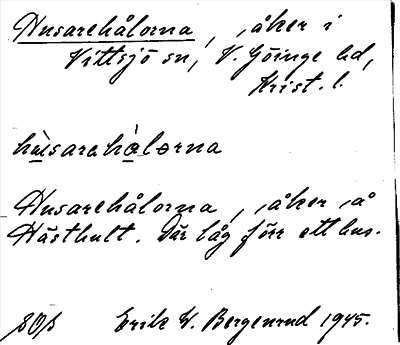 Husarehålorna, åker i
Vittsjö sn, V. Göinge hd,
Krist. l.
hùsarehàlorna
Husarehålorna, åker å
Hästhult. Där låg förr ett hus.
Erik W. Bergenrud 1945.